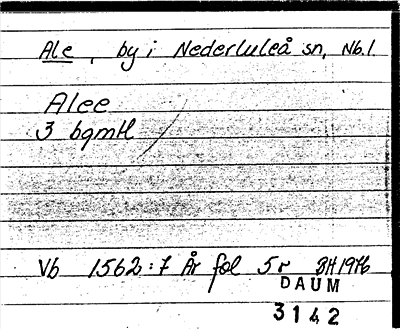 Ale, by i Nederluleå sn, Nb.l
Alee
3 bgmtl
Vb 1562:7 År fol 5r BH 1976
DAUM
3142